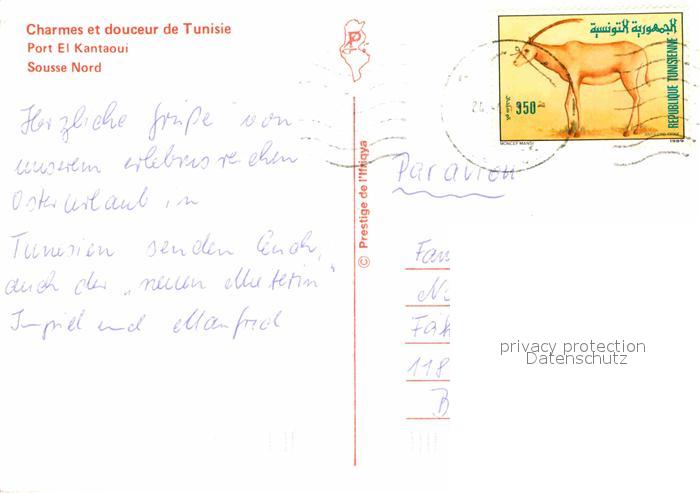 Charmes et douceur de Tunisie
Port El Kantaoui
Sousse Nord
Herzliche Grüße von
unserem erlebnisreichen
Osterurlaub in
Tunesien senden Euch,
auch der „neuen Mieterin"
Ingrid und Manfred
© Prestige de l'Ifriqya
P
الجمهورية التونسية
REPUBLIQUE TUNISIENNE
350
MONCEF MANSI
1989
Par avion
Fam
Fäk
118
B
privacy protection
Datenschutz